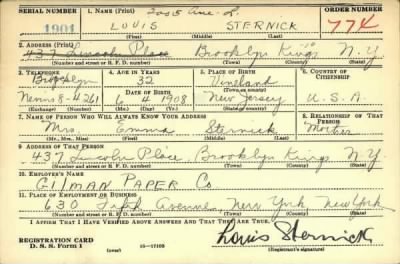 SERIAL NUMBER 1. NAME (Print) ORDER NUMBER
1901 LOUIS STERNICK 774
(First) (Middle) (Last)
2. ADDRESS (Print)
437 Lincoln Place Brooklyn Kings N.Y
(Number and street or R. F. D. number) (Town) (County) (State)
3. TELEPHONE 4. AGE IN YEARS 5. PLACE OF BIRTH 6. COUNTRY OF CITIZENSHIP
Brooklyn 32 Vineland
DATE OF BIRTH (Town or county)
8-4261 6 4 1908 New Jersey U.S.A.
(Exchange) (Number) (Mo.) (Day) (Yr.) (State or country)
7. NAME OF PERSON WHO WILL ALWAYS KNOW YOUR ADDRESS 8. RELATIONSHIP OF THAT PERSON
Mrs. Emma Sternick Mother
(Mr., Mrs., Miss) (First) (Middle) (Last)
9. ADDRESS OF THAT PERSON
437 Lincoln Place Brooklyn Kings N.Y.
(Number and street or R. F. D. number) (Town) (County) (State)
10. EMPLOYER'S NAME
GILMAN PAPER Co
11. PLACE OF EMPLOYMENT OR BUSINESS
630 Fifth Avenue, New York New York
(Number and street or R. F. D. number) (Town) (County) (State)
I AFFIRM THAT I HAVE VERIFIED ABOVE ANSWERS AND THAT THEY ARE TRUE.
Louis Sternick
REGISTRATION CARD
D. S. S. Form 1 16-17105 (Registrant's signature)